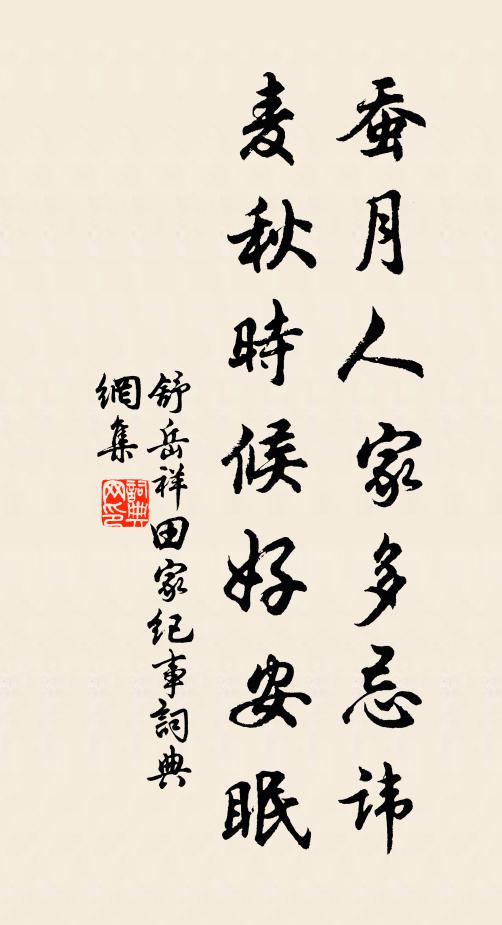 蚕月人家多忌讳
麦秋時候好安眠
舒岳祥田家纪事詞典
網集
詞典
网印